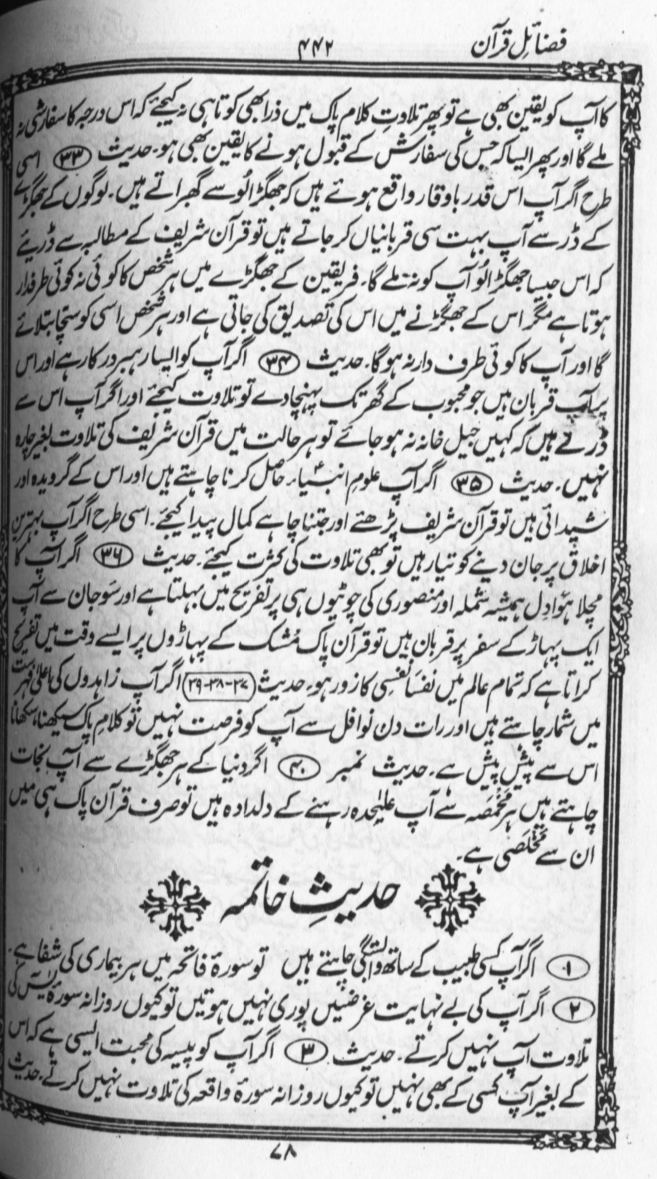 فضائلِ قرآن
۴۴۲
کا آپ کو یقین بھی ہے تو پھر تلاوتِ کلام پاک میں ذرا بھی کوتاہی نہ کیجئے کہ اس درجہ کا سفارشی نہ
ملے گا اور پھر ایسا کہ جس کی سفارش کے قبول ہونے کا یقین بھی ہو۔ حدیث ۳۳ اسی
طرح اگر آپ اس قدر باوقار واقع ہوئے ہیں کہ جھگڑالو سے گھبراتے ہیں۔ لوگوں کے جھگڑے
کے ڈر سے آپ بہت سی قربانیاں کر جاتے ہیں تو قرآن شریف کے مطالبہ سے ڈریئے
کہ اس جیسا جھگڑالُو آپ کو نہ ملے گا۔ فریقین کے جھگڑے میں ہر شخص کا کوئی نہ کوئی طرفدار
ہوتا ہے مگر اس کے جھگڑنے میں اس کی تصدیق کی جاتی ہے اور ہر شخص اسی کو سچا بتلائے
گا اور آپ کا کوئی طرف دار نہ ہوگا۔ حدیث ۳۴ اگر آپ کو ایسا رہبر درکار ہے اور اس
پر آپ قربان ہیں جو محبوب کے گھر تک پہنچا دے تو تلاوت کیجئے اور اگر آپ اس سے
ڈرتے ہیں کہ کہیں جیل خانہ نہ ہو جائے تو ہر حالت میں قرآن شریف کی تلاوت بغیر چارہ
نہیں۔ حدیث ۳۵ اگر آپ علومِ انبیاء حاصل کرنا چاہتے ہیں اور اس کے گرویدہ اور
شیدائی ہیں تو قرآن شریف پڑھئے اور جتنا چاہے کمال پیدا کیجئے۔ اسی طرح اگر آپ بہترین
اخلاق پر جان دینے کو تیار ہیں تو بھی تلاوت کی کثرت کیجئے۔ حدیث ۳۶ اگر آپ کا
مچلا ہوا دل ہمیشہ شملہ اور منصوری کی چوٹیوں ہی پر تفریح میں بہلتا ہے اور سَو جان سے آپ
ایک پہاڑ کے سفر پر قربان ہیں تو قرآن پاک مُشک کے پہاڑوں پر ایسے وقت میں تفریح
کراتا ہے کہ تمام عالم میں نفسا نفسی کا زور ہو۔ حدیث ۳۷-۳۸-۳۹ اگر آپ زاہدوں کی اعلیٰ فہرست
میں شمار چاہتے ہیں اور رات دن نوافل سے آپ کو فرصت نہیں تو کلامِ پاک سیکھنا، سکھانا
اس سے پیش پیش ہے۔ حدیث نمبر ۴۰ اگر دنیا کے ہر جھگڑے سے آپ نجات
چاہتے ہیں ہر مخمصہ سے آپ علیٰحدہ رہنے کے دلدادہ ہیں تو صرف قرآن پاک ہی میں
ان سے مُخلصی ہے۔
حدیثِ خاتمہ
۱ اگر آپ کسی طبیب کے ساتھ وابستگی چاہتے ہیں تو سورۂ فاتحہ میں ہر بیماری کی شفا ہے۔
۲ اگر آپ کی بے نہایت غرضیں پوری نہیں ہوتیں تو کیوں روزانہ سورۂ یٰسٓ کی
تلاوت آپ نہیں کرتے۔ حدیث ۳ اگر آپ کو پیسہ کی محبت ایسی ہے کہ اس
کے بغیر آپ کسی کے بھی نہیں تو کیوں روزانہ سورۂ واقعہ کی تلاوت نہیں کرتے۔ حدیث
۷۸